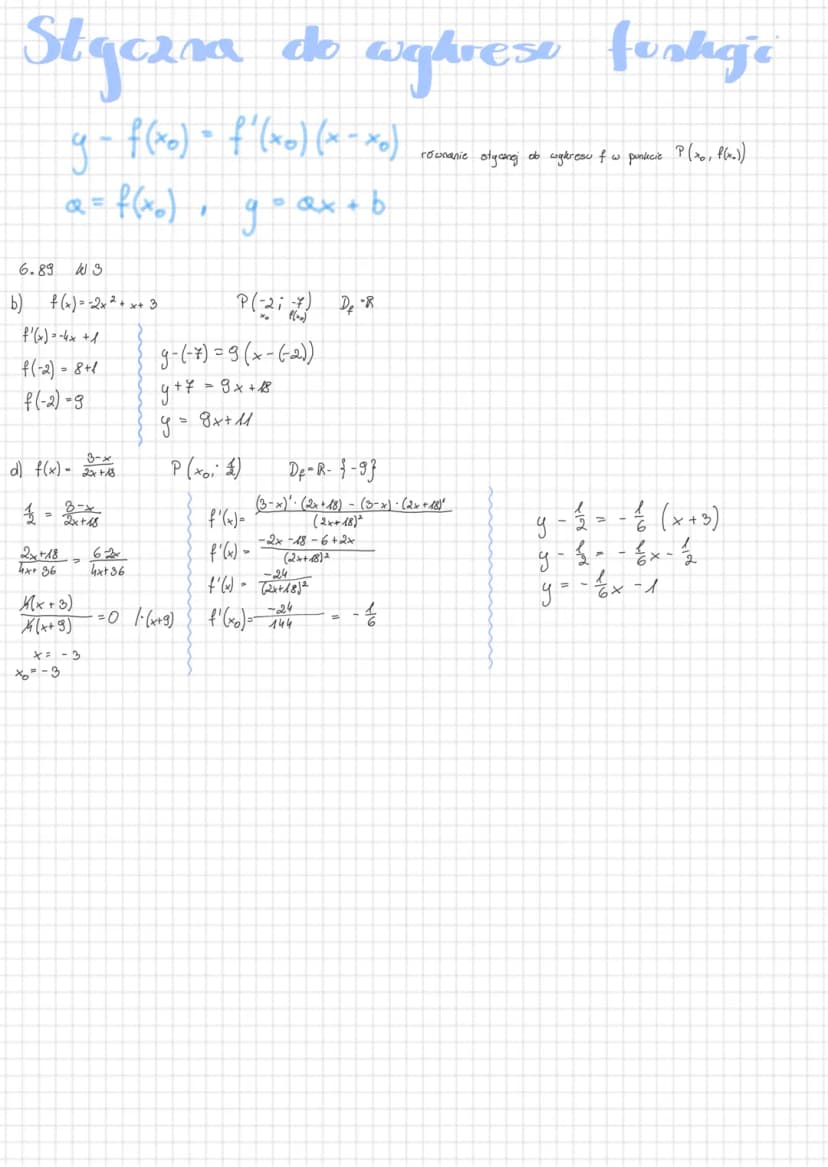 Styczna do wykresu funkcji
y - f(x₀) = f'(x₀)(x - x₀) równanie stycznej do wykresu f w punkcie P(x₀, f(x₀))
a = f(x₀) , y = ax + b
6.89 W 3
b) f(x) = -2x² + x + 3 P(-2; -7) D_f = R
x₀ f(x₀)
f'(x) = -4x + 1
f(-2) = 8+1
f(-2) = 9
y-(-7) = 9(x-(-2))
y+7 = 9x+18
y = 9x+11
d) f(x) = (3-x)/(2x+18) P(x₀; 1/2) D_f = R - {-9}
1/2 = (3-x)/(2x+18)
(2x+18)/(4x+36) = (6-2x)/(4x+36)
4(x+3)/4(x+9) = 0 /·(x+9)
x = -3
x₀ = -3
f'(x) = ((3-x)'·(2x+18) - (3-x)·(2x+18)')/(2x+18)²
f'(x) = (-2x-18-6+2x)/(2x+18)²
f'(x) = -24/(2x+18)²
f'(x₀) = -24/144 = -1/6
y - 1/2 = -1/6 (x+3)
y - 1/2 = -1/6x - 1/2
y = -1/6x - 1